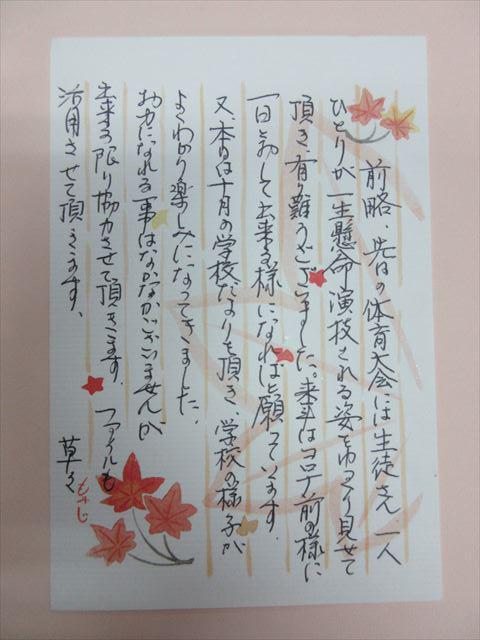 前略、先日の体育大会には生徒さん一人
ひとりが一生懸命演技される姿をゆっくり見せて
頂き、有り難うございました。来年はコロナ前の様に
一日を通して出来る様になればと願っています。
又、本日は十月の学校だよりを頂き、学校の様子が
よくわかり楽しみになってきました。
お力になれる事はなかなかございませんが
出来る限り協力させて頂きます。ファイルも
活用させて頂きます。
草々
もみじ